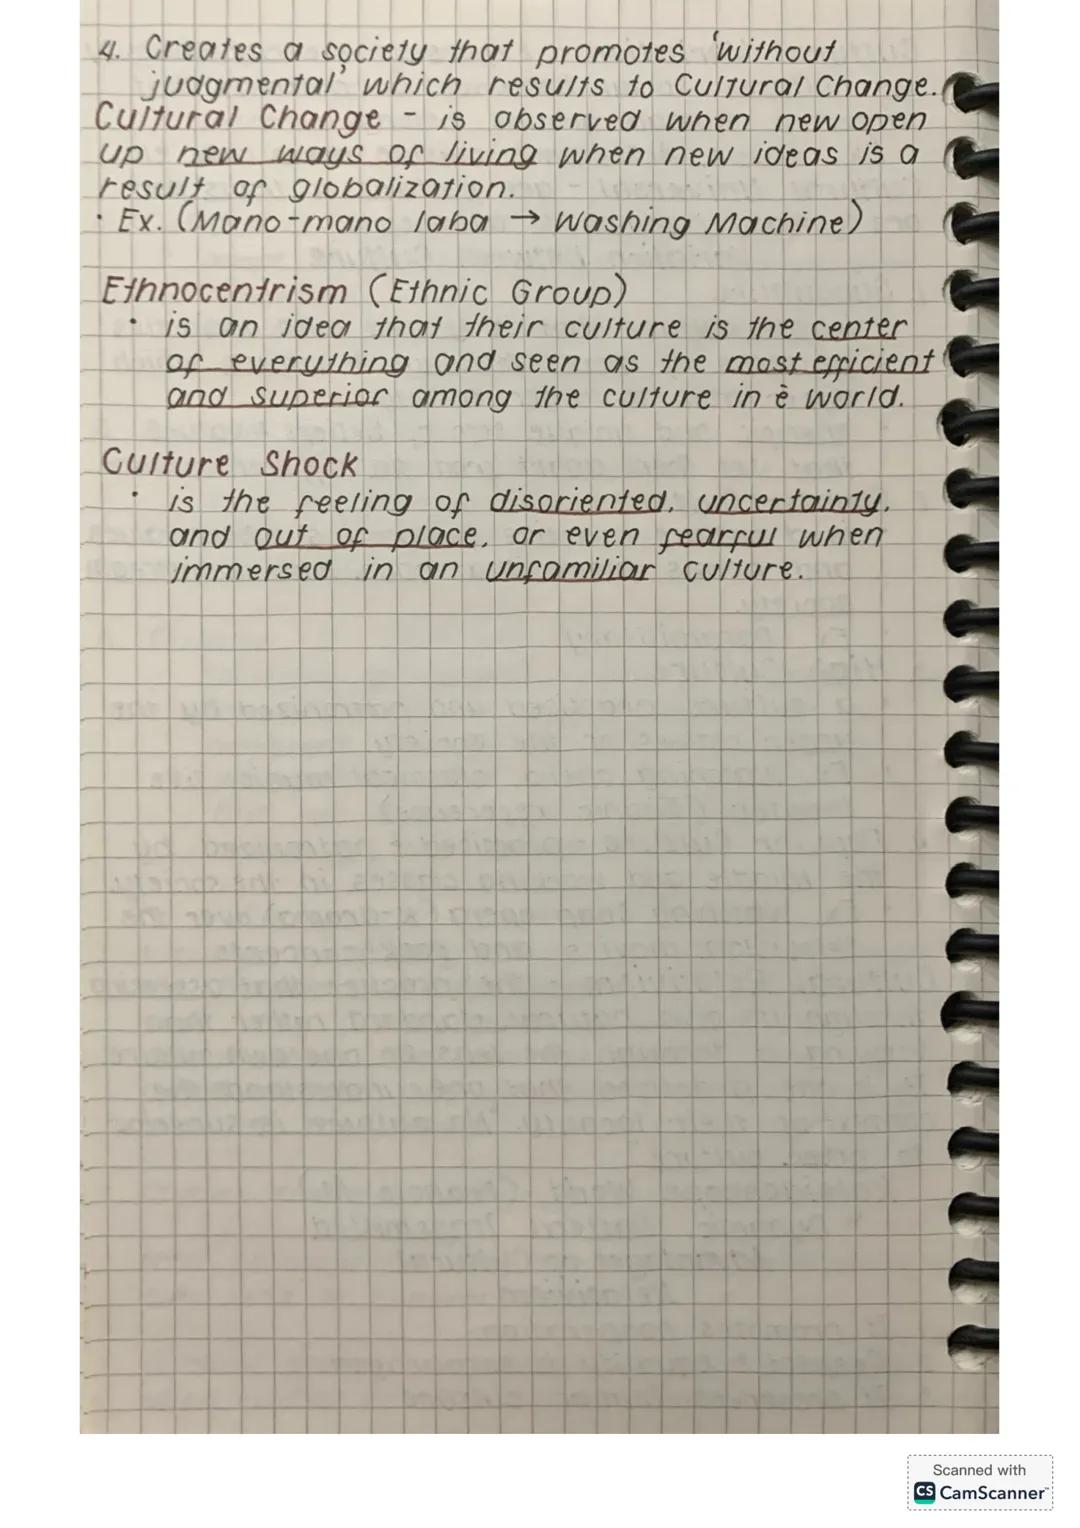 4. Creates a society that promotes 'without
judgmental' which results to Cultural Change.
Cultural Change - is observed when new open
up new ways of living when new ideas is a
result of globalization.
• Ex. (Mano-mano laba → Washing Machine)
Ethnocentrism (Ethnic Group)
• is an idea that their culture is the center
of everything and seen as the most efficient
and superior among the culture in è world.
Culture Shock
• is the feeling of disoriented, uncertainty,
and out of place, or even fearful when
immersed in an unfamiliar culture.
Scanned with
CS CamScanner